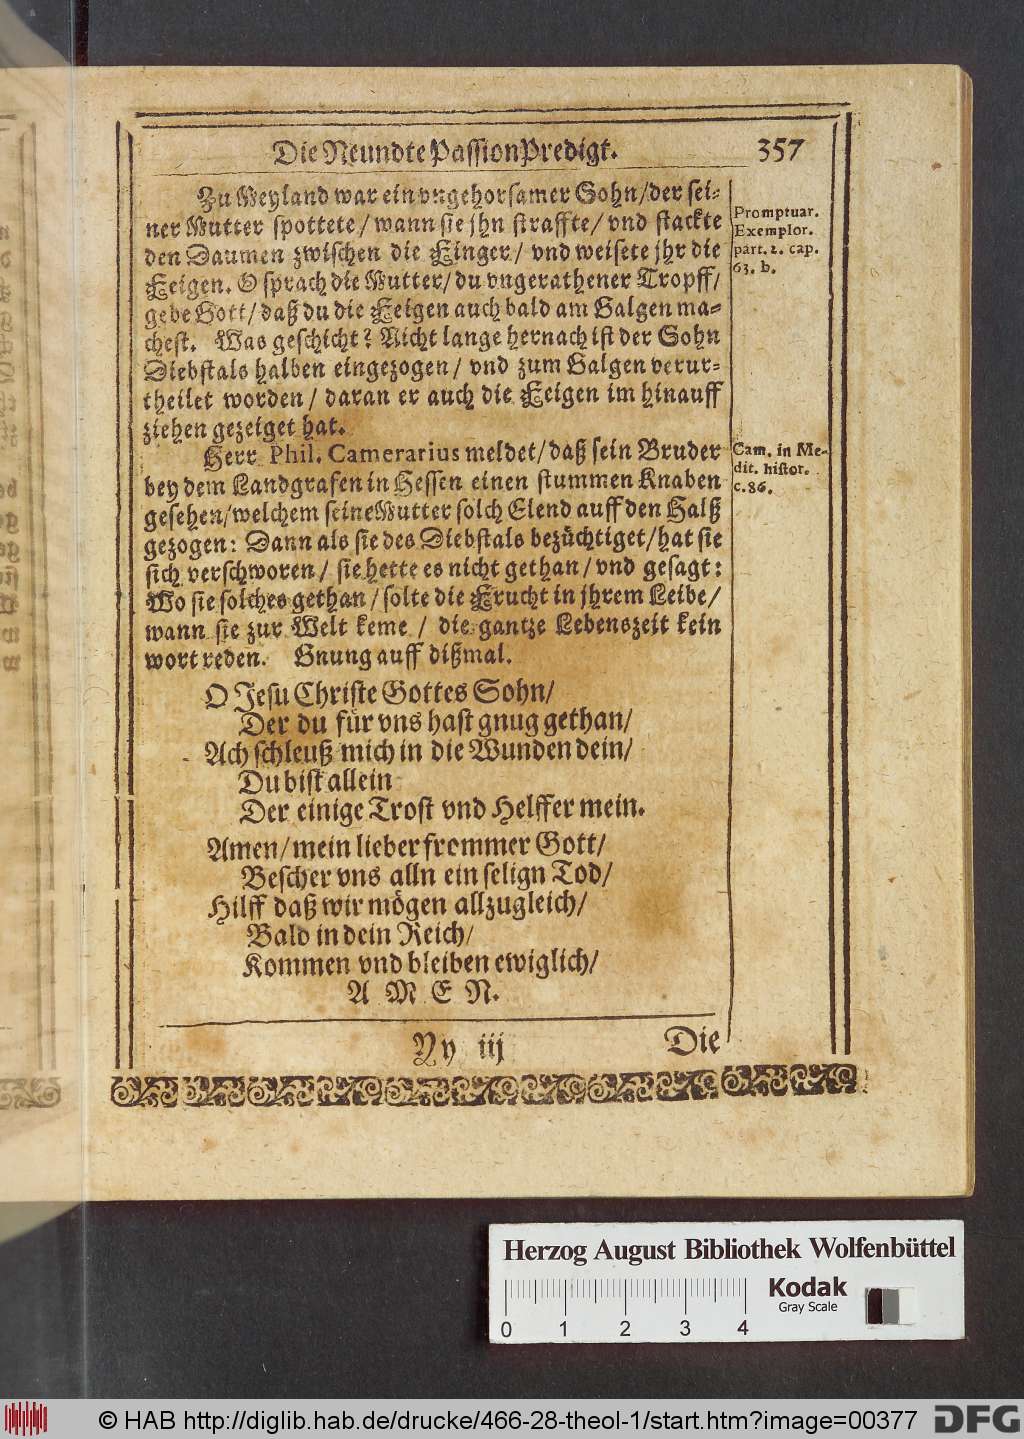 Die Neundte PassionPredigt. 357
Zu Meyland war ein vngehorsamer Sohn/der sei-
ner Mutter spottete/wann sie jhn straffte/ vnd stackte
den Daumen zwischen die Finger/ vnd weisete jhr die
Feigen. O sprach die Mutter/du vngerathener Tropff/
gebe Gott/daß du die Feigen auch bald am Galgen ma-
chest. Was geschicht? Nicht lange hernach ist der Sohn
Diebstals halben eingezogen/ vnd zum Galgen verur-
theilet worden/ daran er auch die Feigen im hinauff
ziehen gezeiget hat.
Promptuar.
Exemplor.
part. 2. cap.
63. b.
Herr Phil. Camerarius meldet/daß sein Bruder
bey dem Landgrafen in Hessen einen stummen Knaben
gesehen/welchem seine Mutter solch Elend auff den Halß
gezogen: Dann als sie des Diebstals bezüchtiget/hat sie
sich verschworen/ sie hette es nicht gethan/vnd gesagt:
Wo sie solches gethan/solte die Frucht in jhrem Leibe/
wann sie zur Welt keme / die gantze Lebenszeit kein
wort reden. Gnung auff dißmal.
Cam. in Me-
dit. histor.
c. 86.
O Jesu Christe Gottes Sohn/
Der du für vns hast gnug gethan/
Ach schleuß mich in die Wunden dein/
Du bist allein
Der einige Trost vnd Helffer mein.
Amen/mein lieber frommer Gott/
Bescher vns alln ein selign Tod/
Hilff daß wir mögen allzugleich/
Bald in dein Reich/
Kommen vnd bleiben ewiglich/
A M E N.
Yy iij Die
Herzog August Bibliothek Wolfenbüttel
Kodak
Gray Scale
0 1 2 3 4
© HAB http://diglib.hab.de/drucke/466-28-theol-1/start.htm?image=00377
DFG